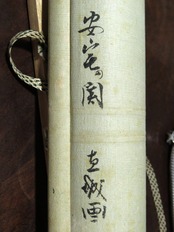 安宅の関
直城画